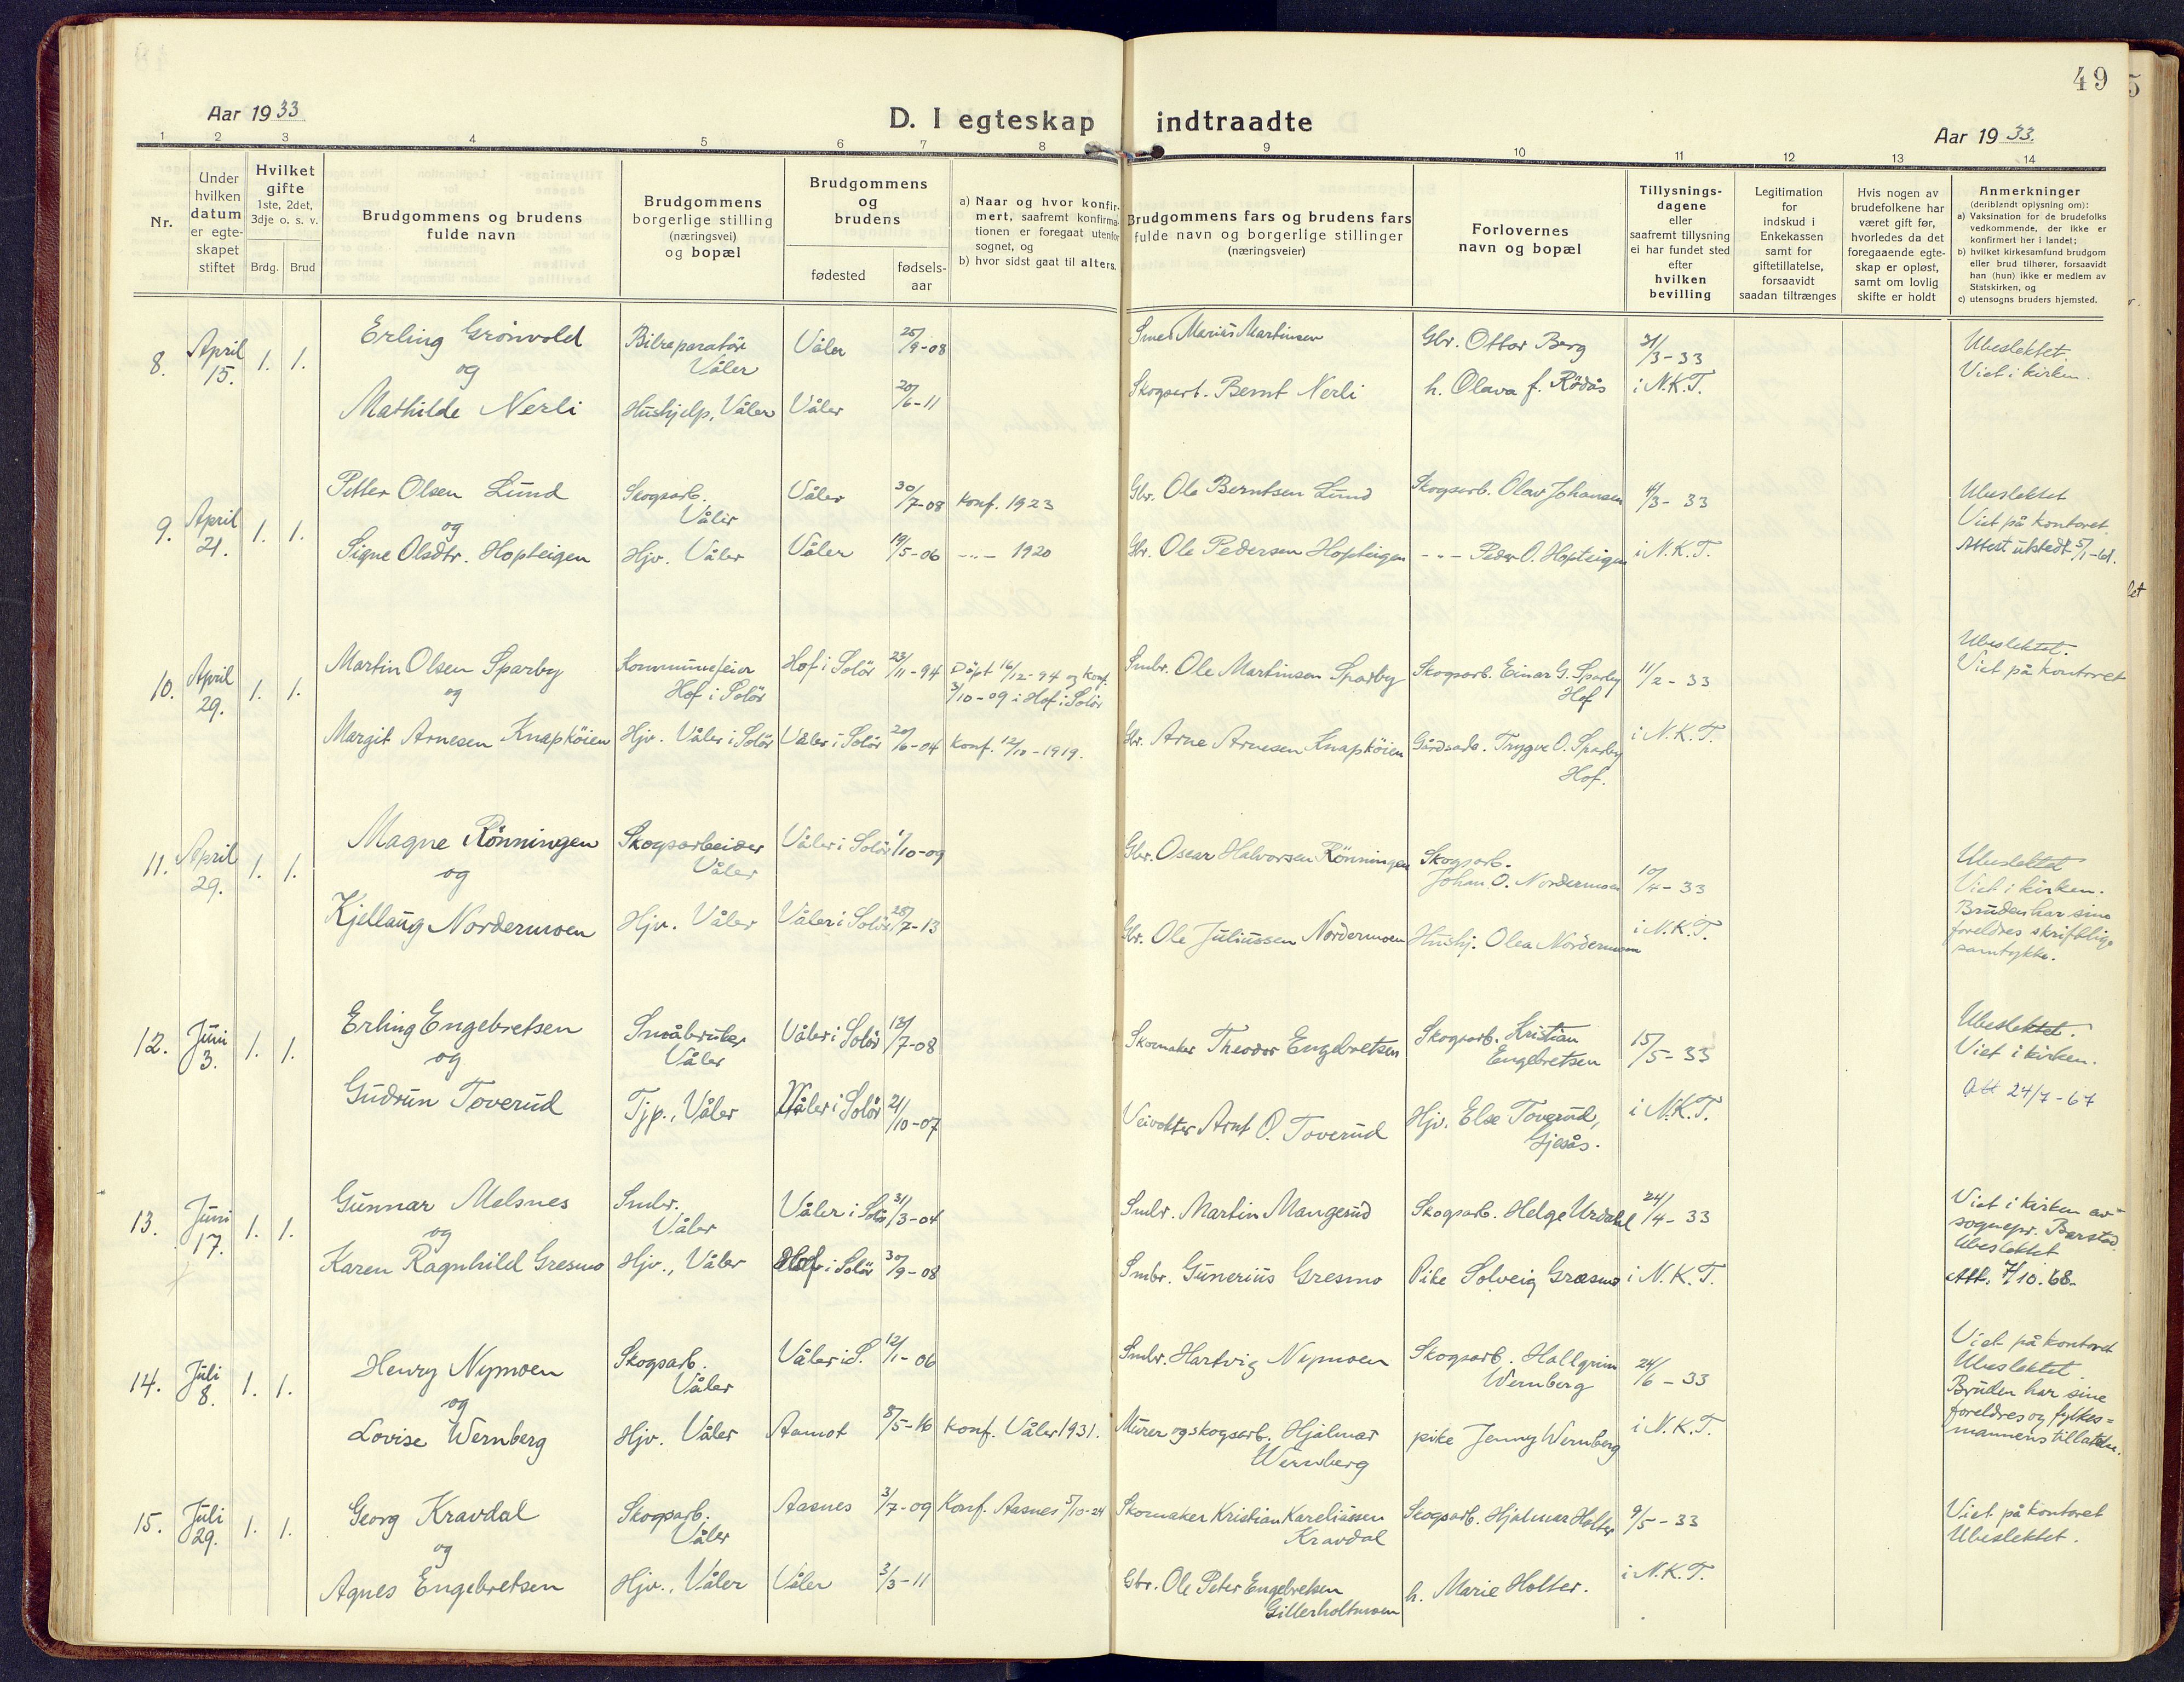 49
Aar 1933
D. I egteskap indtraadte
Aar 1933.
1 2 3 4 5 6 7 8 9 10 11 12 13 14
Nr.
Under hvilken datum er egteskapet stiftet
Hvilket gifte 1ste, 2det, 3dje o. s. v.
Brdg. Brud
Brudgommens og brudens fulde navn
Brudgommens borgerlige stilling (næringsvei) og bopæl
Brudgommens og brudens
fødested
fødselsaar
a) Naar og hvor konfirmert, saafremt konfirmationen er foregaat utenfor sognet, og
b) hvor sidst gaat til alters.
Brudgommens fars og brudens fars fulde navn og borgerlige stillinger (næringsveier)
Forlovernes navn og bopæl
Tillysningsdagene eller saafremt tillysning ei har fundet sted efter hvilken bevilling
Legitimation for indskud i Enkekassen samt for giftetillatelse, forsaavidt saadan tiltrænges
Hvis nogen av brudefolkene har været gift før, hvorledes da det foregaaende egteskap er opløst, samt om lovlig skifte er holdt
Anmerkninger (deriblandt oplysning om):
a) Vaksination for de brudefolks vedkommende, der ikke er konfirmert her i landet;
b) hvilket kirkesamfund brudgom eller brud tilhører, forsaavidt han (hun) ikke er medlem av Statskirken, og
c) utensogns bruders hjemsted.
8. April 15. 1. 1. Erling Grönvold Bilreparatör Våler Våler 25/9-08 Smed Marius Martinsen Gbr. Ottar Berg 31/3-33 Ubeslektet.
og Viet i kirken.
Mathilde Nerli Hushjelp, Våler Våler 20/6-11 Skogsarb. Bernt Nerli h. Olava f. Rödås i N.K.T.
9. April 21. 1. 1. Petter Olsen Lund Skogsarb. Våler Våler 30/7-08 Konf. 1923 Gbr. Ole Berntsen Lund Skogsarb. Olav Johansen 4/3-33 Ubeslektet
og Viet på kontoret.
Signe Olsdtr. Hopteigen Hjv. Våler Våler 19/5-06 -"- 1920 Gbr. Ole Pedersen Hopteigen -"- Peder O. Hopteigen i N.K.T. Attest utstedt 5/1-61.
10. April 29. 1. 1. Martin Olsen Sparby Kommunefeier Hof i Solör Hof i Solör 23/11-94 Döpt 16/12-94 og konf. 3/10-09 i Hof i Solör Smbr. Ole Martinsen Sparby Skogsarb. Einar G. Sparby Hof 11/2-33 Ubeslektet.
og Viet på kontoret
Margit Arnesen Knapköien Hjv. Våler i Solör Våler i Solör 20/6-04 Konf. 12/10-1919. Gbr. Arne Arnesen Knapköien Gårdsarb. Trygve O. Sparby Hof. i N.K.T.
11. April 29. 1. 1. Magne Rönningen Skogsarbeider Våler Våler i Solör 1/10-09 Gbr. Oscar Halvorsen Rönningen Skogsarb. Johan O. Nordermoen 10/4-33 Ubeslektet
og Viet i kirken.
Kjellaug Nordermoen Hjv. Våler Våler i Solör 28/7-13 Gbr. Ole Juliussen Nordermoen Hushj. Olea Nordermoen i N.K.T. Bruden har sine foreldres skriftlige samtykke.
12. Juni 3. 1. 1. Erling Engebretsen Småbruker Våler Våler i Solör 13/7-08 Skomaker Theodor Engebretsen Skogsarb. Kristian Engebretsen 15/5-33 Ubeslektet.
og Viet i kirken.
Gudrun Toverud Tjp., Våler Våler i Solör 21/10-07 Veivokter Arnt O. Toverud Hjv. Else Toverud, Gjesås. i N.K.T. Att 24/7-67
13. Juni 17. 1. 1. Gunnar Melsnes Smbr. Våler Våler i Solör 31/3-04 Smbr. Martin Mangerud Skogsarb. Helge Urdahl 24/4-33 Viet i kirken av sognepr. Barstad.
og Ubeslektet
Karen Ragnhild Gresmo Hjv., Våler Hof i Solör 30/9-08 Smbr. Gunerius Gresmo Pike Solveig Græsmo i N.K.T. Att. 7/10.68.
14. Juli 8. 1. 1. Henry Nymoen Skogsarb. Våler Våler i S. 12/1-06 Smbr. Hartvig Nymoen Skogsarb. Hallgrim Wernberg 24/6-33 Viet på kontoret
og Ubeslektet.
Lovise Wernberg Hjv. Våler Aamot 8/5-16 Konf. Våler 1931. Murer og skogsarb. Hjalmar Wernberg pike Jenny Wernberg i N.K.T. Bruden har sine foreldres og fylkesmannens tillatelse.
15. Juli 29. 1. 1. Georg Kravdal Skogsarb. Våler Aasnes 3/7-09 Konf. Aasnes 5/10-24 Skomaker Kristian Kareliussen Kravdal Skogsarb. Hjalmar Holter 9/5-33 Viet på kontoret
og Ubeslektet.
Agnes Engebretsen Hjv., Våler Våler 3/3-11 Gbr. Ole Peter Engebretsen Gillerholtmoen h. Marie Holter. i N.K.T.